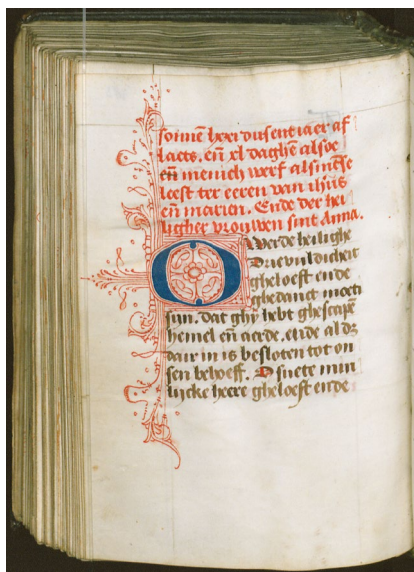 somē heer dusent iaer af
laets. eñ xl daghē alsoe
eñ menich werf alsmēse
leest ter eeren van ihūs
eñ marien. Ende der hei
ligher vrouwen sint Anna.
O Werde heilighe
Drevuldicheit
gheloeft ende
ghedanct moeti
sijn. dat ghij hebt ghescapē
hemel eñ aerde. ende al dz
dair in is besloten tot on
sen behoeff. O suete min
lijcke heere gheloeft ende